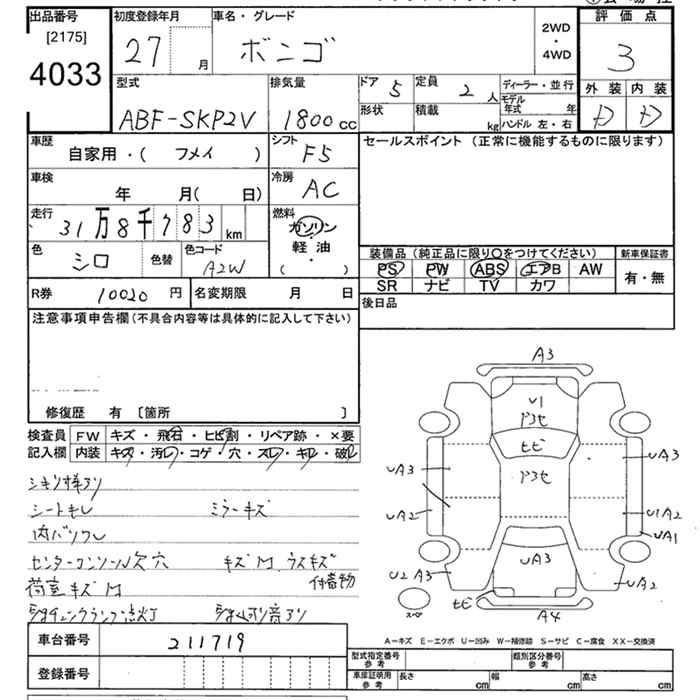 出品番号 初度登録年月 車名・グレード 評価点
[2175] 2WD
4033 27 月 ボンゴ ・ 3
4WD
型式 排気量 ドア 5 定員 2 人 ディーラー・並行 外装 内装
モデル年式 年
ABF-SKP2V 1800 cc 形状 積載 kg ハンドル 左・右 D D
車歴 シフト セールスポイント (正常に機能するものに限ります)
自家用・( フメイ ) F5
車検 冷房
年 月( 日) AC
走行 燃料
31万8千783 km ガソリン・
軽油・
色 シロ 色替 色コード A2W ( )
装備品 (純正品に限り○をつけてください) 新車保証書
PS PW ABS エアB AW 有・無
SR ナビ TV カワ
R券 10020 円 名変期限 月 日 後日品
注意事項申告欄(不具合内容等は具体的に記入して下さい)
修復歴 有 〔箇所 〕
検査員 FW キズ・飛石・ヒビ割・リペア跡・×要
記入欄 内装 キズ・汚レ・コゲ・穴・スレ・キレ・破レ
シートモレ ミラーキズ
内バリワレ
センターコンソール欠穴 キズM、ウスキズ
荷室キズM 付着物
車台番号 211719
登録番号
A3
U1
ドヨセ
ヒビ
ドヨセ
UA3 UA3
UA2 U1A2
UA1
UA3
U2A3 UA2
ヒビ
スペア A4
A-キズ E-エクボ U-凹み W-補修跡 S-サビ C-腐食 XX-交換済
型式指定番号 参考 類別区分番号 参考
車庫証明用 参考 長さ cm 幅 cm 高さ cm